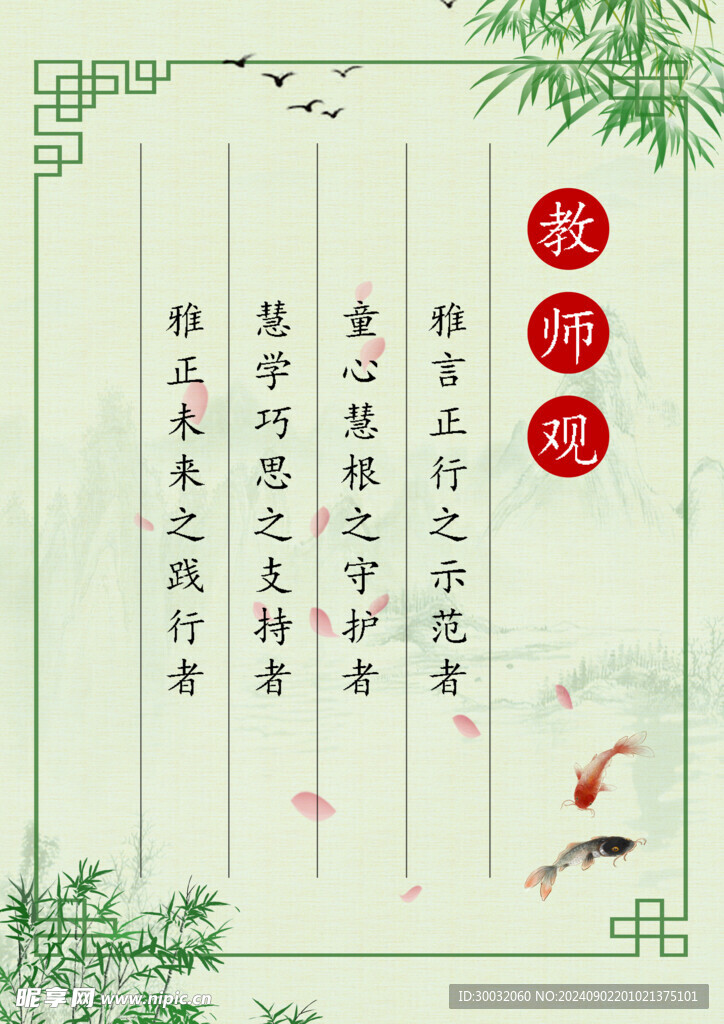 教师观
雅言正行之示范者
童心慧根之守护者
慧学巧思之支持者
雅正未来之践行者
昵享网 www.nipic.cn
ID:30032060 NO:20240902201021375101